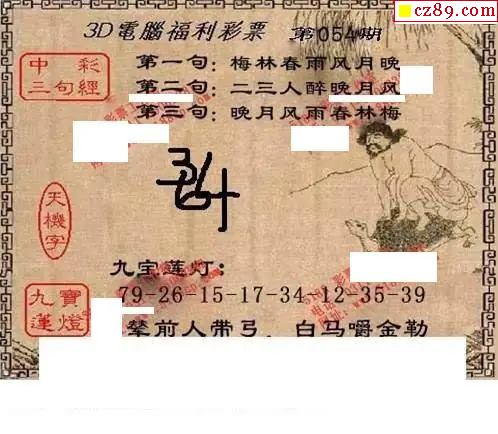 cz89.com
3D電腦福利彩票 第054期
中彩
三句經
第一句：梅林春雨风月晚
第二句：二三人醉晚月风
第三句：晚月风雨春林梅
天機字
九宝莲灯：
九寶
蓮燈
79-26-15-17-34-12-35-39
辇前人带弓，白马嚼金勒